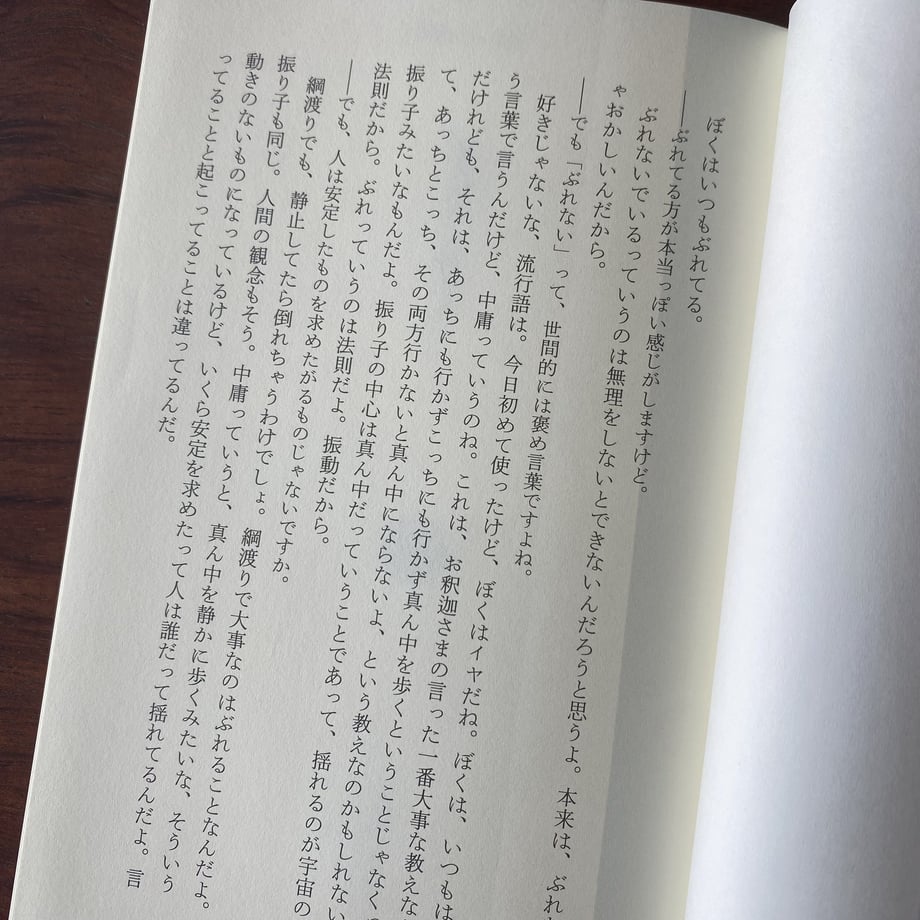 ぼくはいつもぶれてる。
――ぶれてる方が本当っぽい感じがしますけど。
ぶれないでいるっていうのは無理をしないとできないんだろうと思うよ。本来は、ぶれ
ゃおかしいんだから。
――でも「ぶれない」って、世間的には褒め言葉ですよね。
好きじゃないな、流行語は。今日初めて使ったけど、ぼくはイヤだね。ぼくは、いつもは
う言葉で言うんだけど、中庸っていうのね。これは、お釈迦さまの言った一番大事な教えな
だけれども、それは、あっちにも行かずこっちにも行かず真ん中を歩くということじゃなく
て、あっちとこっち、その両方行かないと真ん中にならないよ、という教えなのかもしれない
振り子みたいなもんだよ。振り子の中心は真ん中だっていうことであって、揺れるのが宇宙の
法則だから。ぶれっていうのは法則だよ。振動だから。
――でも、人は安定したものを求めたがるものじゃないですか。
綱渡りでも、静止してたら倒れちゃうわけでしょ。綱渡りで大事なのはぶれることなんだよ。
振り子も同じ。人間の観念もそう。中庸っていうと、真ん中を静かに歩くみたいな、そういう
動きのないものになっているけど、いくら安定を求めたって人は誰だって揺れてるんだよ。言
ってることと起こってることは違ってるんだ。